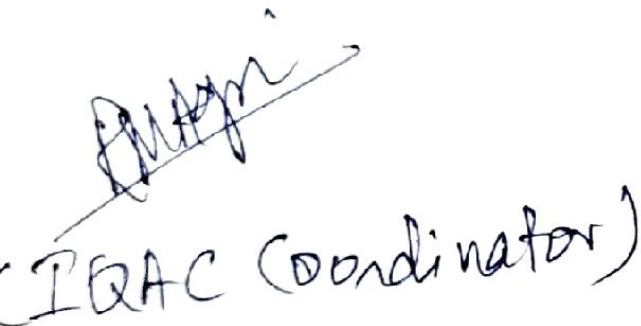 (IQAC Coordinator)